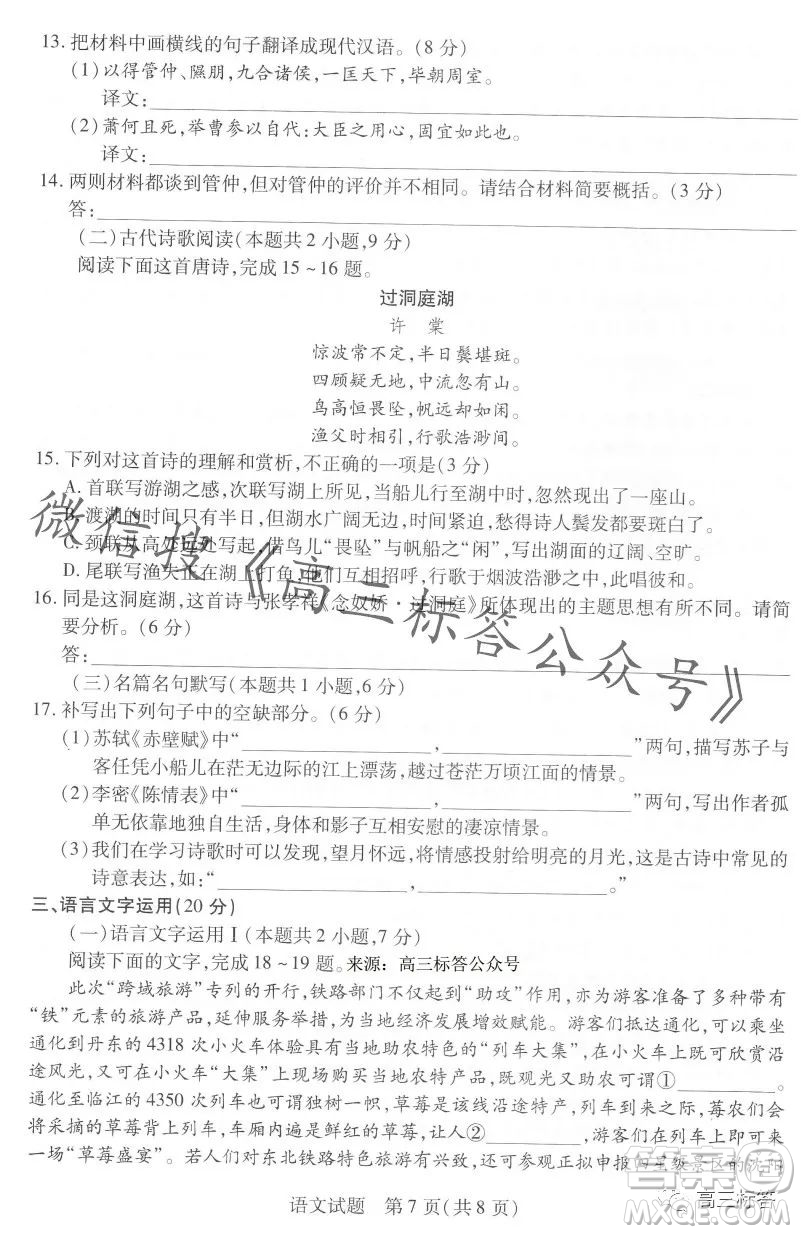 13. 把材料中画横线的句子翻译成现代汉语。(8 分)
(1)以得管仲、隰朋,九合诸侯,一匡天下,毕朝周室。
译文:
(2)萧何且死,举曹参以自代:大臣之用心,固宜如此也。
译文:
14. 两则材料都谈到管仲,但对管仲的评价并不相同。请结合材料简要概括。(3 分)
答:
(二)古代诗歌阅读(本题共 2 小题,9 分)
阅读下面这首唐诗,完成 15~16 题。
过洞庭湖
许 棠
惊波常不定,半日鬓堪斑。
四顾疑无地,中流忽有山。
鸟高恒畏坠,帆远却如闲。
渔父时相引,行歌浩渺间。
15. 下列对这首诗的理解和赏析,不正确的一项是(3 分)
A. 首联写游湖之感,次联写湖上所见,当船儿行至湖中时,忽然现出了一座山。
B. 渡湖的时间只有半日,但湖水广阔无边,时间紧迫,愁得诗人鬓发都要斑白了。
C. 颈联从高处远处写起,借鸟儿“畏坠”与帆船之“闲”,写出湖面的辽阔、空旷。
D. 尾联写渔夫正在湖上打鱼,他们互相招呼,行歌于烟波浩渺之中,此呼彼应。
16. 同是这洞庭湖,这首诗与张孝祥《念奴娇·过洞庭》所体现出的主题思想有所不同。请简
要分析。(6 分)
答:
(三)名篇名句默写(本题共 1 小题,6 分)
17. 补写出下列句子中的空缺部分。(6 分)
(1)苏轼《赤壁赋》中“ , ”两句,描写苏子与
客任凭小船儿在茫无边际的江上漂荡,越过苍茫万顷江面的情景。
(2)李密《陈情表》中“ , ”两句,写出作者孤
单无依靠地独自生活,身体和影子互相安慰的凄凉情景。
(3)我们在学习诗歌时可以发现,望月怀远,将情感投射给明亮的月光,这是古诗中常见的
诗意表达,如:“ , 。”
三、语言文字运用(20 分)
(一)语言文字运用Ⅰ(本题共 2 小题,7 分)
阅读下面的文字,完成 18~19 题。来源:高三标答公众号
此次“跨域旅游”专列的开行,铁路部门不仅起到“助攻”作用,亦为游客准备了多种带有
“铁”元素的旅游产品,延伸服务举措,为当地经济发展增效赋能。游客们抵达通化,可以乘坐
通化到丹东的 4318 次小火车体验具有当地助农特色的“列车大集”,在小火车上既可欣赏沿
途风光,又可在小火车“大集”上现场购买当地农特产品,既观光可谓①
通化至临江的 4350 次列车也可谓独树一帜,草莓是该线沿途特产,列车到来之际,莓农们会
将采摘的草莓背上列车,车厢内遍是鲜红的草莓,让人② ,游客们在列车上即可来
一场“草莓盛宴”。若人们对东北铁路特色旅游有兴致,还可参观正拟申报四星级景区的沈阳
语文试题 第 7 页(共 8 页)
微信搜《高三标答公众号》
答案圈
MXQE.COM
高三标答